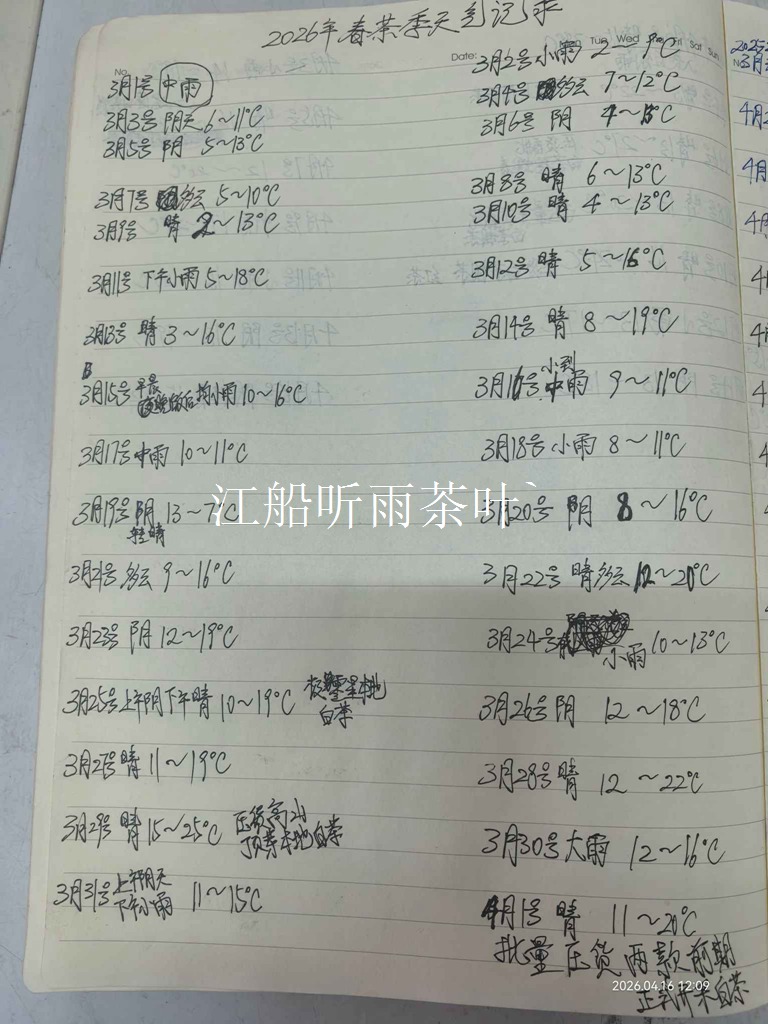 2026年春茶季天气记录
Date: Mon Tue Wed Thu Fri Sat Sun
No.
3月1号 中雨
3月2号 小雨 2～9℃
3月3号 阴天 6～11℃
3月4号 多云 7～12℃
3月5号 阴 5～13℃
3月6号 阴 4～15℃
3月7号 多云 5～10℃
3月8号 晴 6～13℃
3月9号 晴 2～13℃
3月10号 晴 4～13℃
3月11号 下午小雨 5～18℃
3月12号 晴 5～16℃
3月13号 晴 3～16℃
3月14号 晴 8～19℃
3月15号 早晨 晚饭后 均小雨 10～16℃
3月16号 小到中雨 9～11℃
3月17号 中雨 10～11℃
3月18号 小雨 8～11℃
3月19号 阴转晴 13～7℃
3月20号 阴 8～16℃
江船听雨茶叶
3月21号 多云 9～16℃
3月22号 晴多云 12～20℃
3月23号 阴 12～19℃
3月24号 小雨 10～13℃
3月25号 上午阴下午晴 10～19℃ 极零星本地
白茶
3月26号 阴 12～18℃
3月27号 晴 11～19℃
3月28号 晴 12～22℃
3月29号 晴 15～25℃ 压货高山
顶芽本地白茶
3月30号 大雨 12～16℃
3月31号 上午阴天
下午小雨 11～15℃
4月1号 晴 11～20℃
批量压货两款前期
正式开采白茶
2026.04.16 12:09